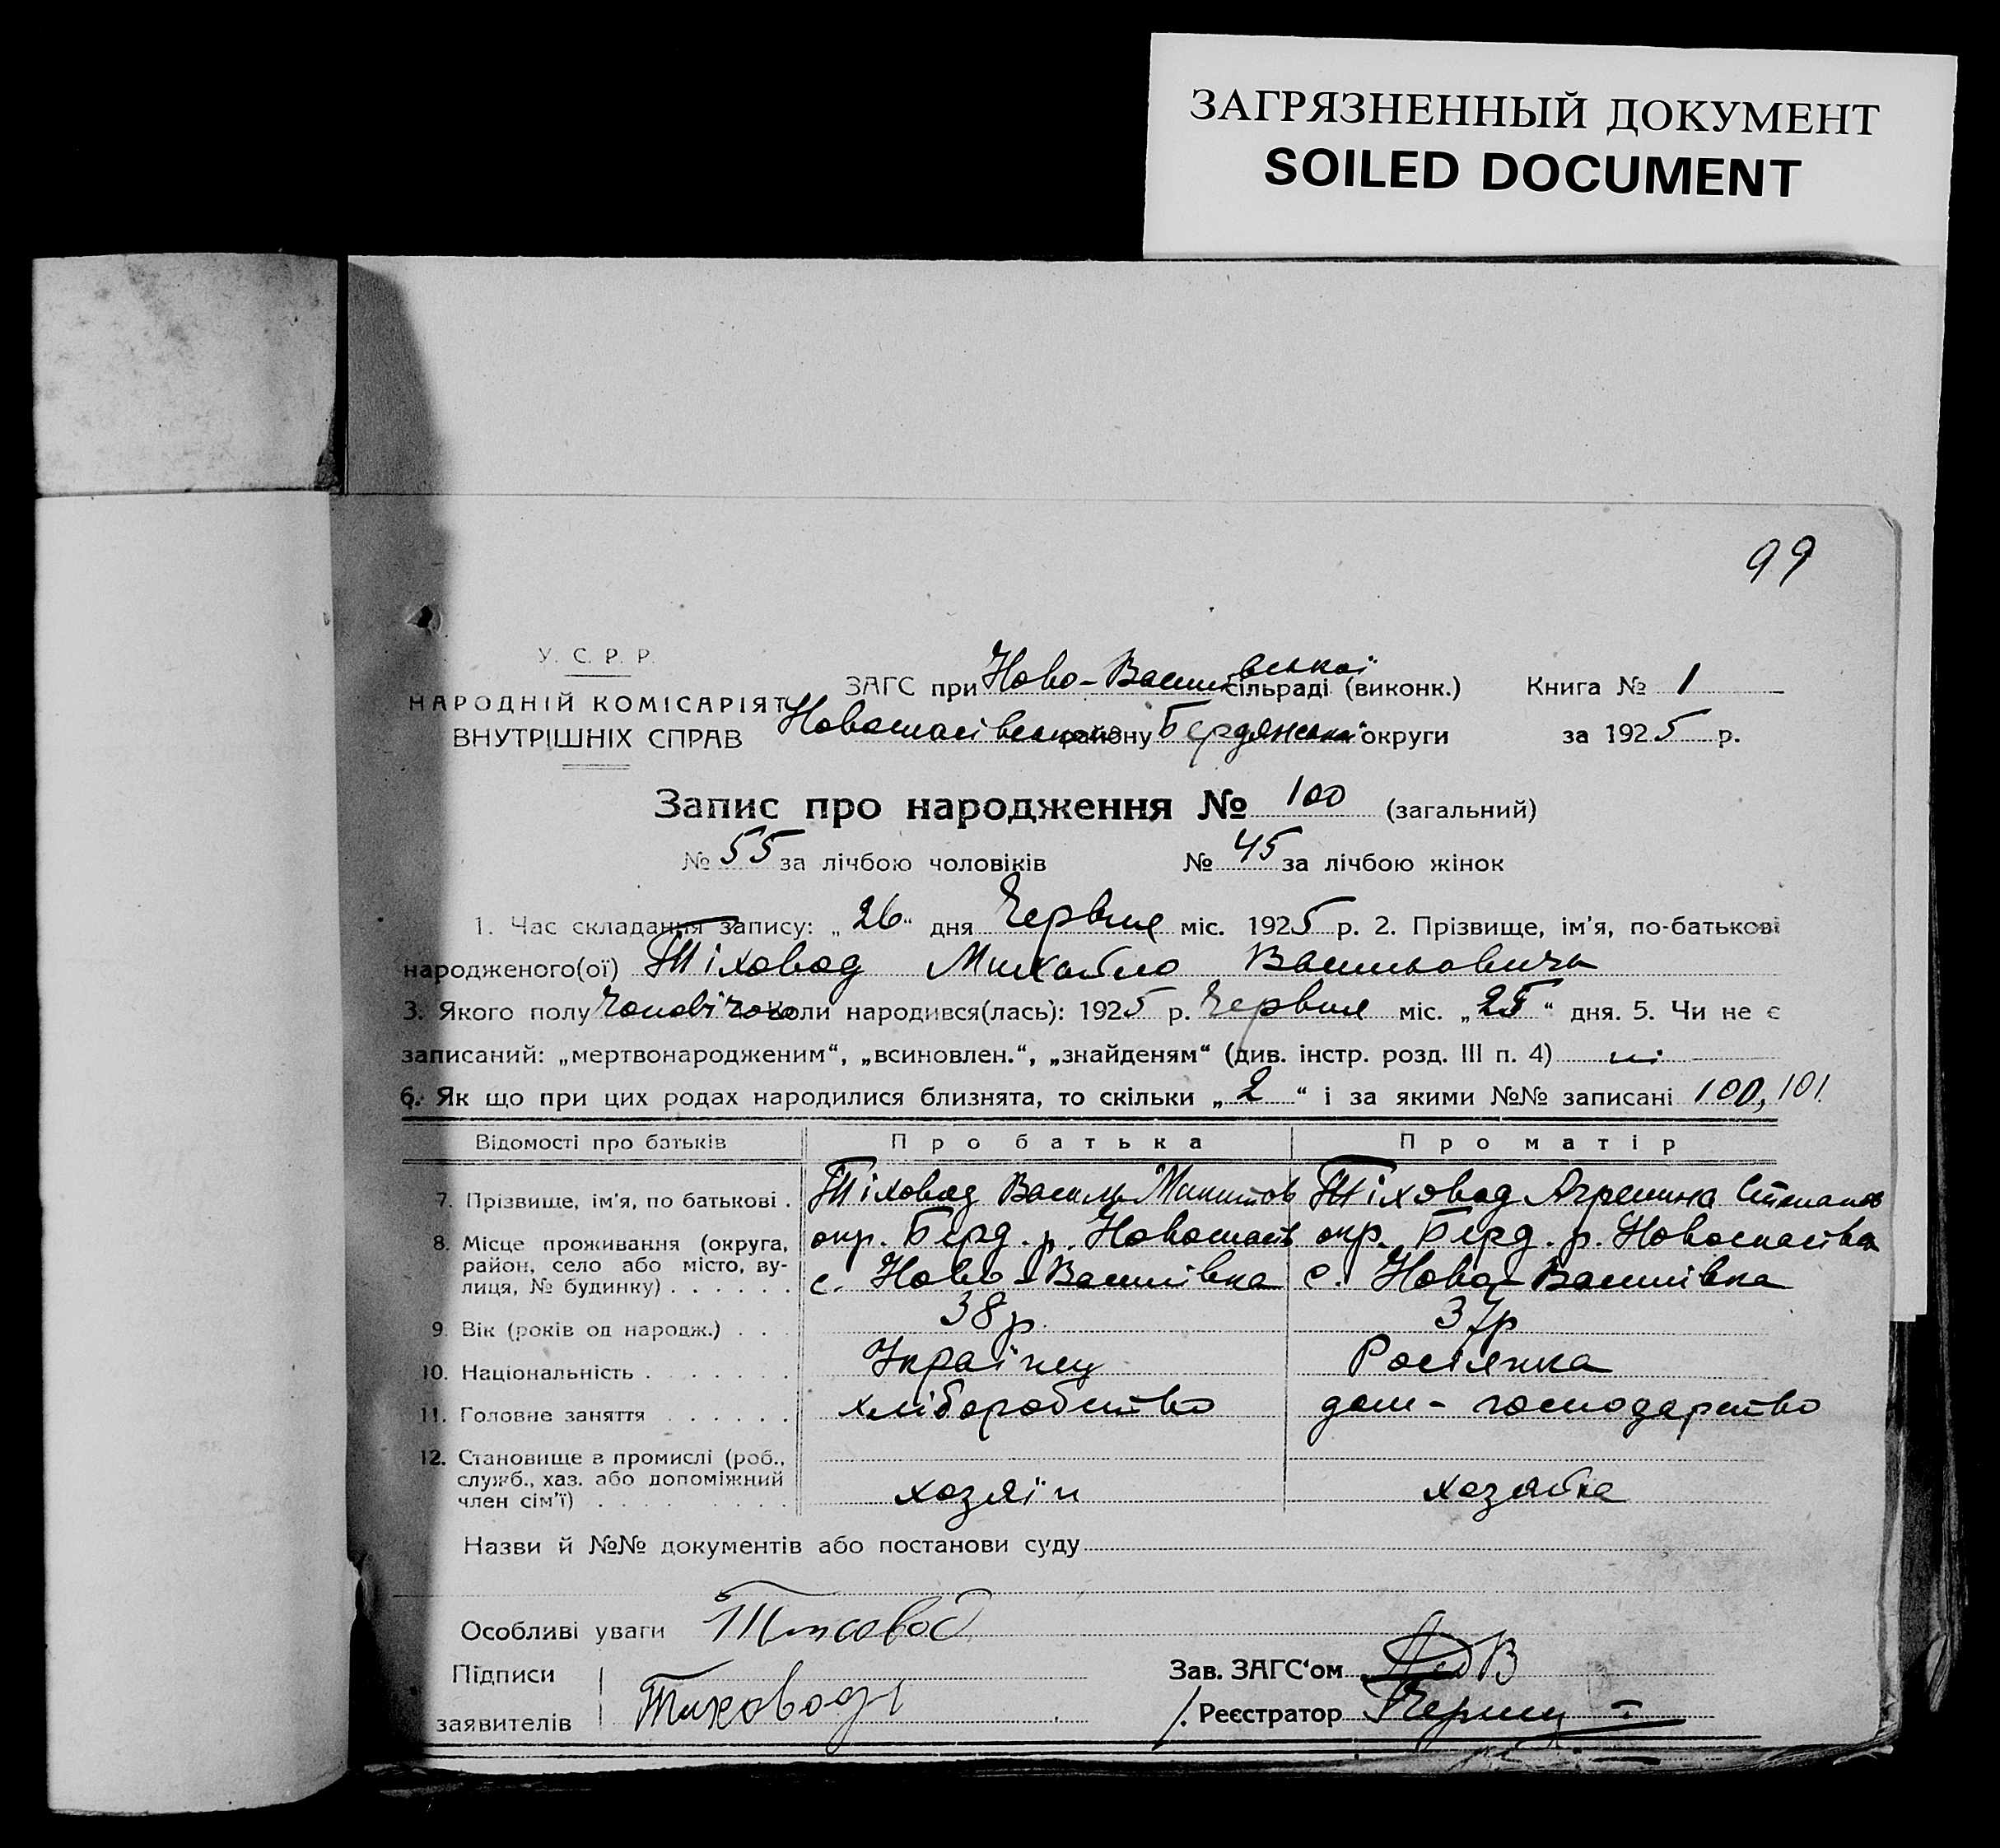 ЗАГРЯЗНЕННЫЙ ДОКУМЕНТ
SOILED DOCUMENT
99
У. С. Р. Р.
НАРОДНІЙ КОМІСАРІЯТ
ВНУТРІШНІХ СПРАВ
ЗАГС при Ново-Василівській сільраді (виконк.) Книга № 1
Новоспасівського району Бердянської округи за 1925 р.
Запис про народження № 100 (загальний)
№ 55 за лічбою чоловіків № 45 за лічбою жінок
1. Час складання запису: „26“ дня Червня міс. 1925 р. 2. Прізвище, ім'я, по-батькові
народженого(ої) Тіховод Михайло Васильович
3. Якого полу чоловічого Коли народився(лась): 1925 р. Червня міс. „25“ дня. 5. Чи не є
записаний: „мертвонародженим“, „всиновлен.“, „знайденям“ (див. інстр. розд. III п. 4) ні
6. Як що при цих родах народилися близнята, то скільки „2“ і за якими №№ записані 100, 101
Відомості про батьків Про батька Про матір
7. Прізвище, ім'я, по батькові . Тіховод Василь Микитов Тіховод Агрепина Степанов
8. Місце проживання (округа, район, село або місто, вулиця, № будинку) . . . . . .
окр. Берд. р. Новоспасів окр. Берд. р. Новоспасівка
с. Ново-Василівка с. Ново-Василівка
9. Вік (років од народж.) . . . 38 р. 37 р
10. Національність . . . . . . . Українец Росіянка
11. Головне заняття . . . . . . хліборобство дом-господарство
12. Становище в промислі (роб., служб., хаз. або допоміжний член сім'ї) . . . . . . . . .
хозяїн хозяйка
Назви й №№ документів або постанови суду
Особливі уваги Тиховод
Підписи
заявителів Тиховод
Зав. ЗАГС'ом
Реєстратор